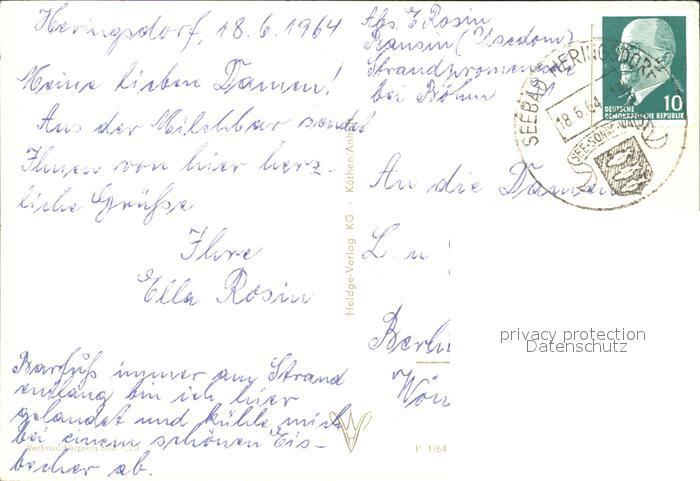 Heringsdorf, 18.6.1964
Meine lieben Damen!
Aus der Milchbar sendet
Ihnen von hier herz-
liche Grüße
Ihre
Ella Rosin
Barfuß immer am Strand
entlang bin ich hier
gelandet und kühle mich
bei einem schönen Eis-
becher ab.
Verbraucherpreis
Heldge-Verlag KG · Köthen/Anh.
P 1/64
Abs. E. Rosin
Bansin (Usedom)
Strandpromenade
bei Böhm
SEEBAD HERINGSDORF
18.6.64
SEE-SONNE-WALD
10
DEUTSCHE
DEMOKRATISCHE REPUBLIK
An die Damen
L. u
Berli
Wör
privacy protection
Datenschutz